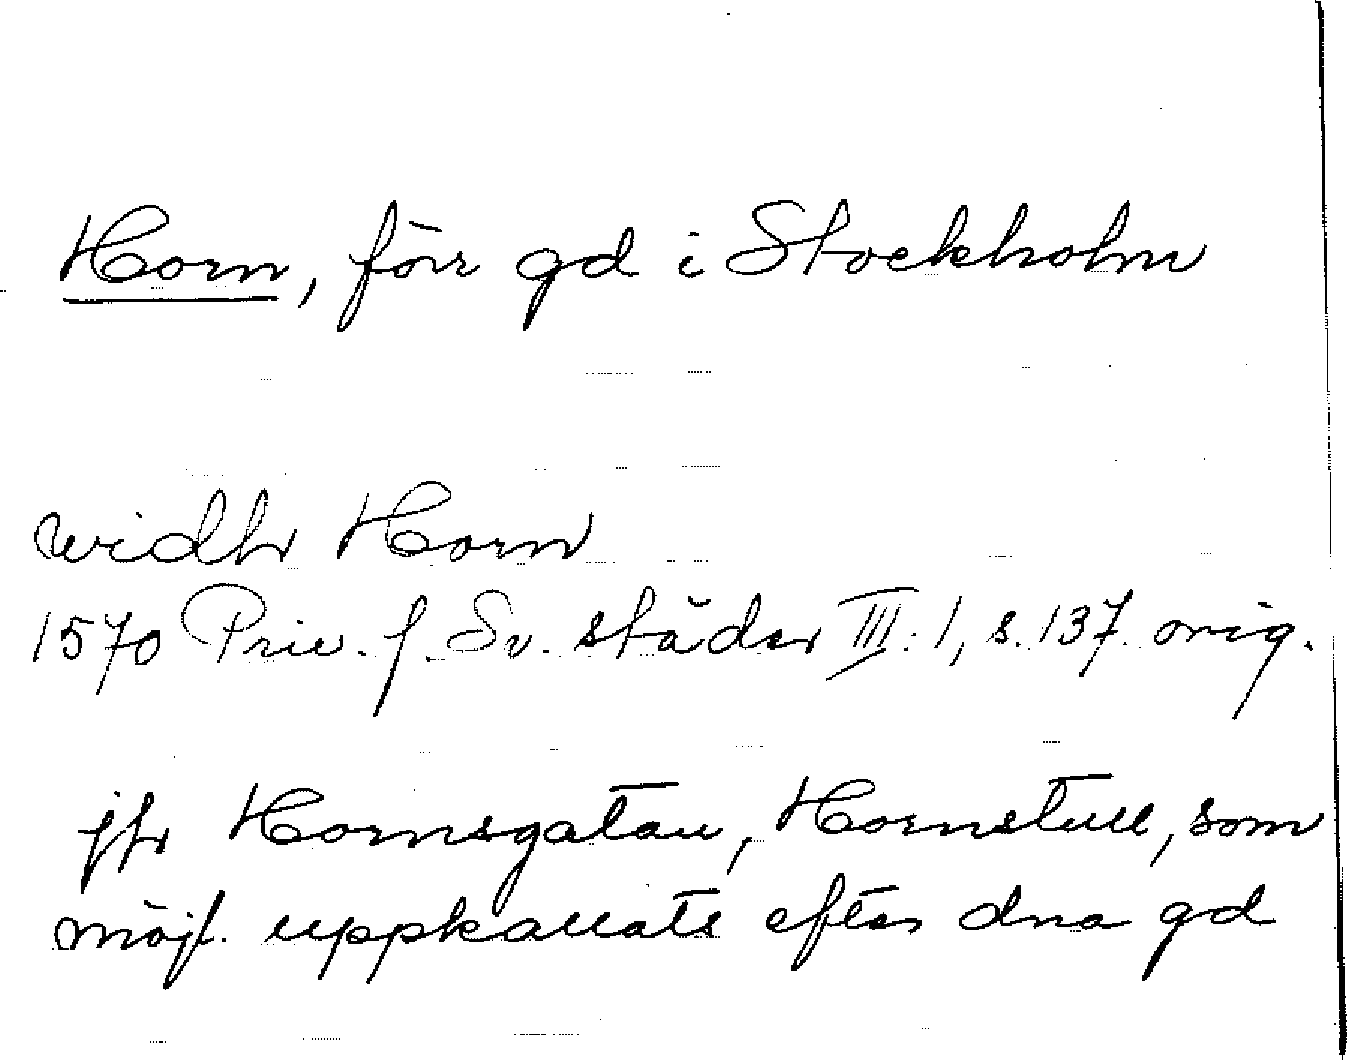 Horn, förr gd i Stockholm
widh Horn
1570 Priv. f. Sv. städer III: 1, s. 137. orig.
jfr Hornsgatan, Hornstull, som
möjl. uppkallats efter dna gd